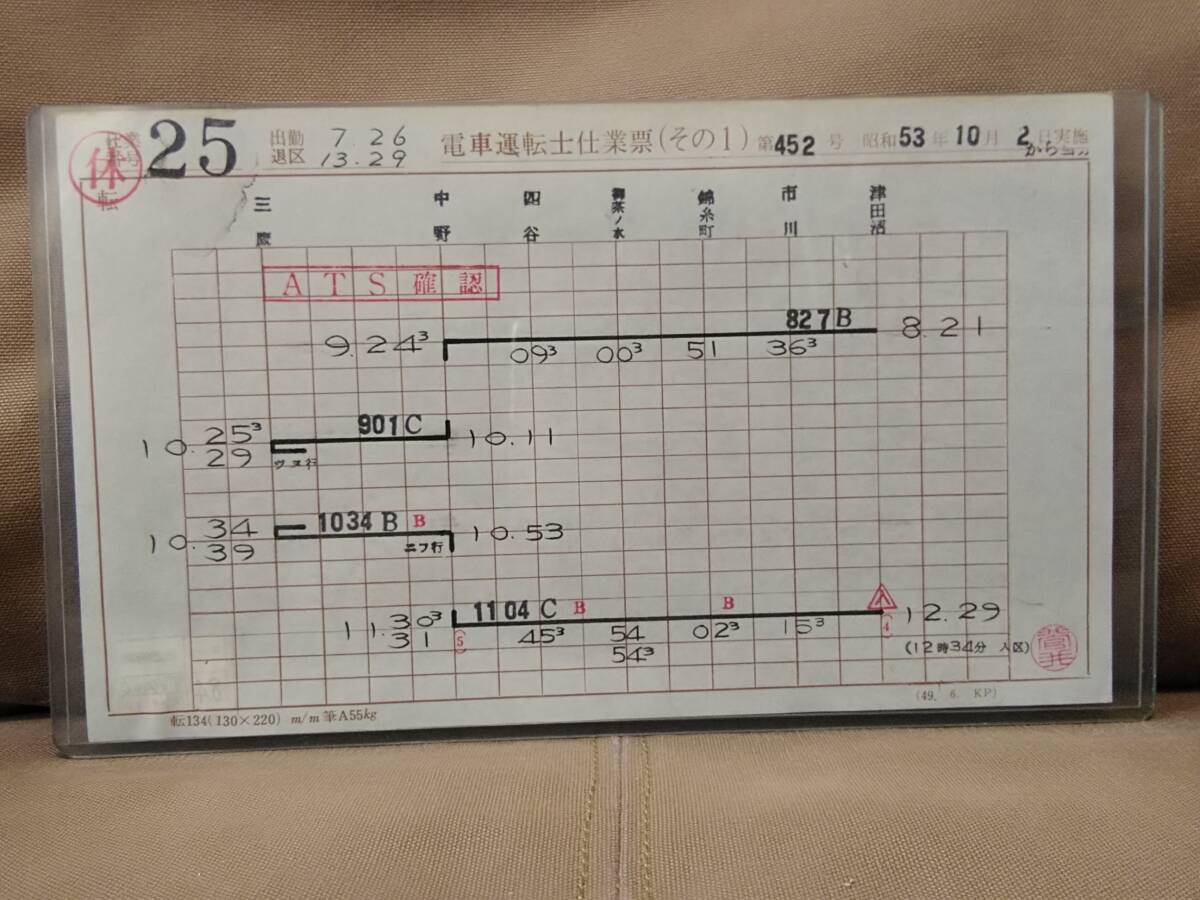 仕業番号 25 出勤 7.26 電車運転士仕業票(その1) 第452号 昭和53年10月2日実施
休 転 退区 13.29 から当分
三鷹 中野 四谷 御茶ノ水 錦糸町 市川 津田沼
ATS確認
827B
9.24³ 09³ 00³ 51 36³ 8.21
901C
10.25³ 10.11
29 ウヌ行
34 1034B B
10.39 ニフ行 10.53
1104C B B
11.30³ 45³ 54 02³ 15³ 12.29
31 5 54³ 4 (12時34分 入区)
転134(130×220) m/m 筆A55kg (49. 6. KP)